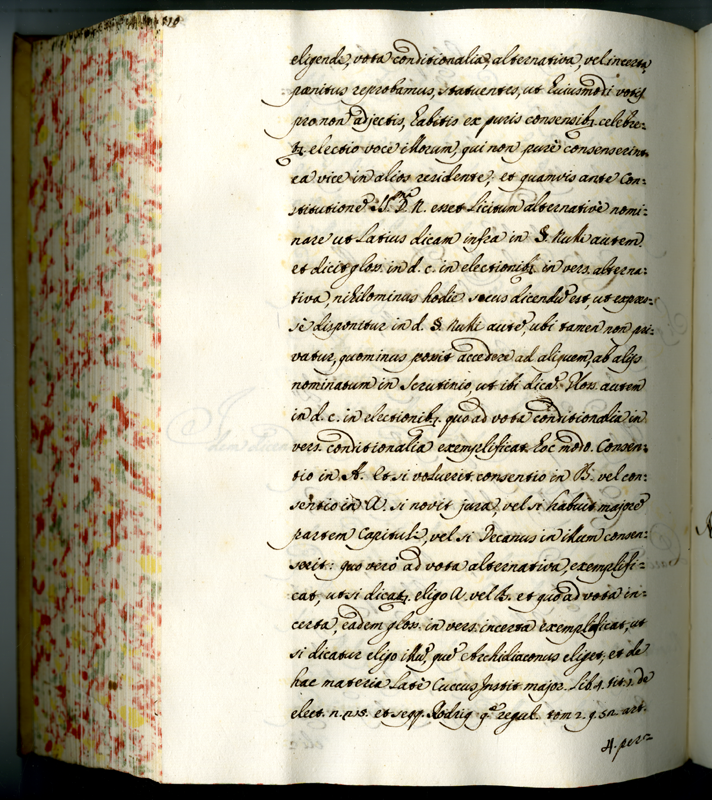 eligendo, vota conditionalia, alternativa, vel incerta
poenitus reprobamus, statuentes, ut huiusmodi votis
pro non adjectis, habitis ex puris consensibꝫ. celebre=
tꝛ. electio voce illorum, qui non purè consenserint
ea vice in alios residente; et quamvis ante Con=
stitutionē S.mi D. N. esset licitum alternativè nomi=
nare ut latius dicam infra in §. Nulli autem
et dicit glos. in d. c. in electionibꝫ. in vers. alterna=
tiva, nihilominus hodie secus dicendū est, ut expres=
sè disponitur in d. §. Nulli autē, ubi tamen non pri=
vatur, quominus possit accedere ad aliquem, ab alijs
nominatum in Scrutinio, ut ibi dicē. Glos. autem
in d. c. in electionibꝫ. quo ad vota conditionalia in
vers. conditionalia exemplificat hoc modo. Consen=
tio in A. et si voluerit consentio in B. vel con=
sentio in A. si novit jura, vel si habuit majorē
partem Capituli, vel si Decanus in illum consen=
serit: quo vero ad vota alternativa exemplifi=
cat, ut si dicatꝛ. eligo A. vel B. et quo ad vota in=
certa, eadem glos. in vers. incerta exemplificat, ut
si dicatur eligo illū, quē Archidiaconus eliget, et de
hac materia latè Cuccus Instit. major. lib. 4. tit. 1. de
elect. n. 215. et seqq. Rodrig. qq. regul. tom 2. q. 52. art.
4. per=